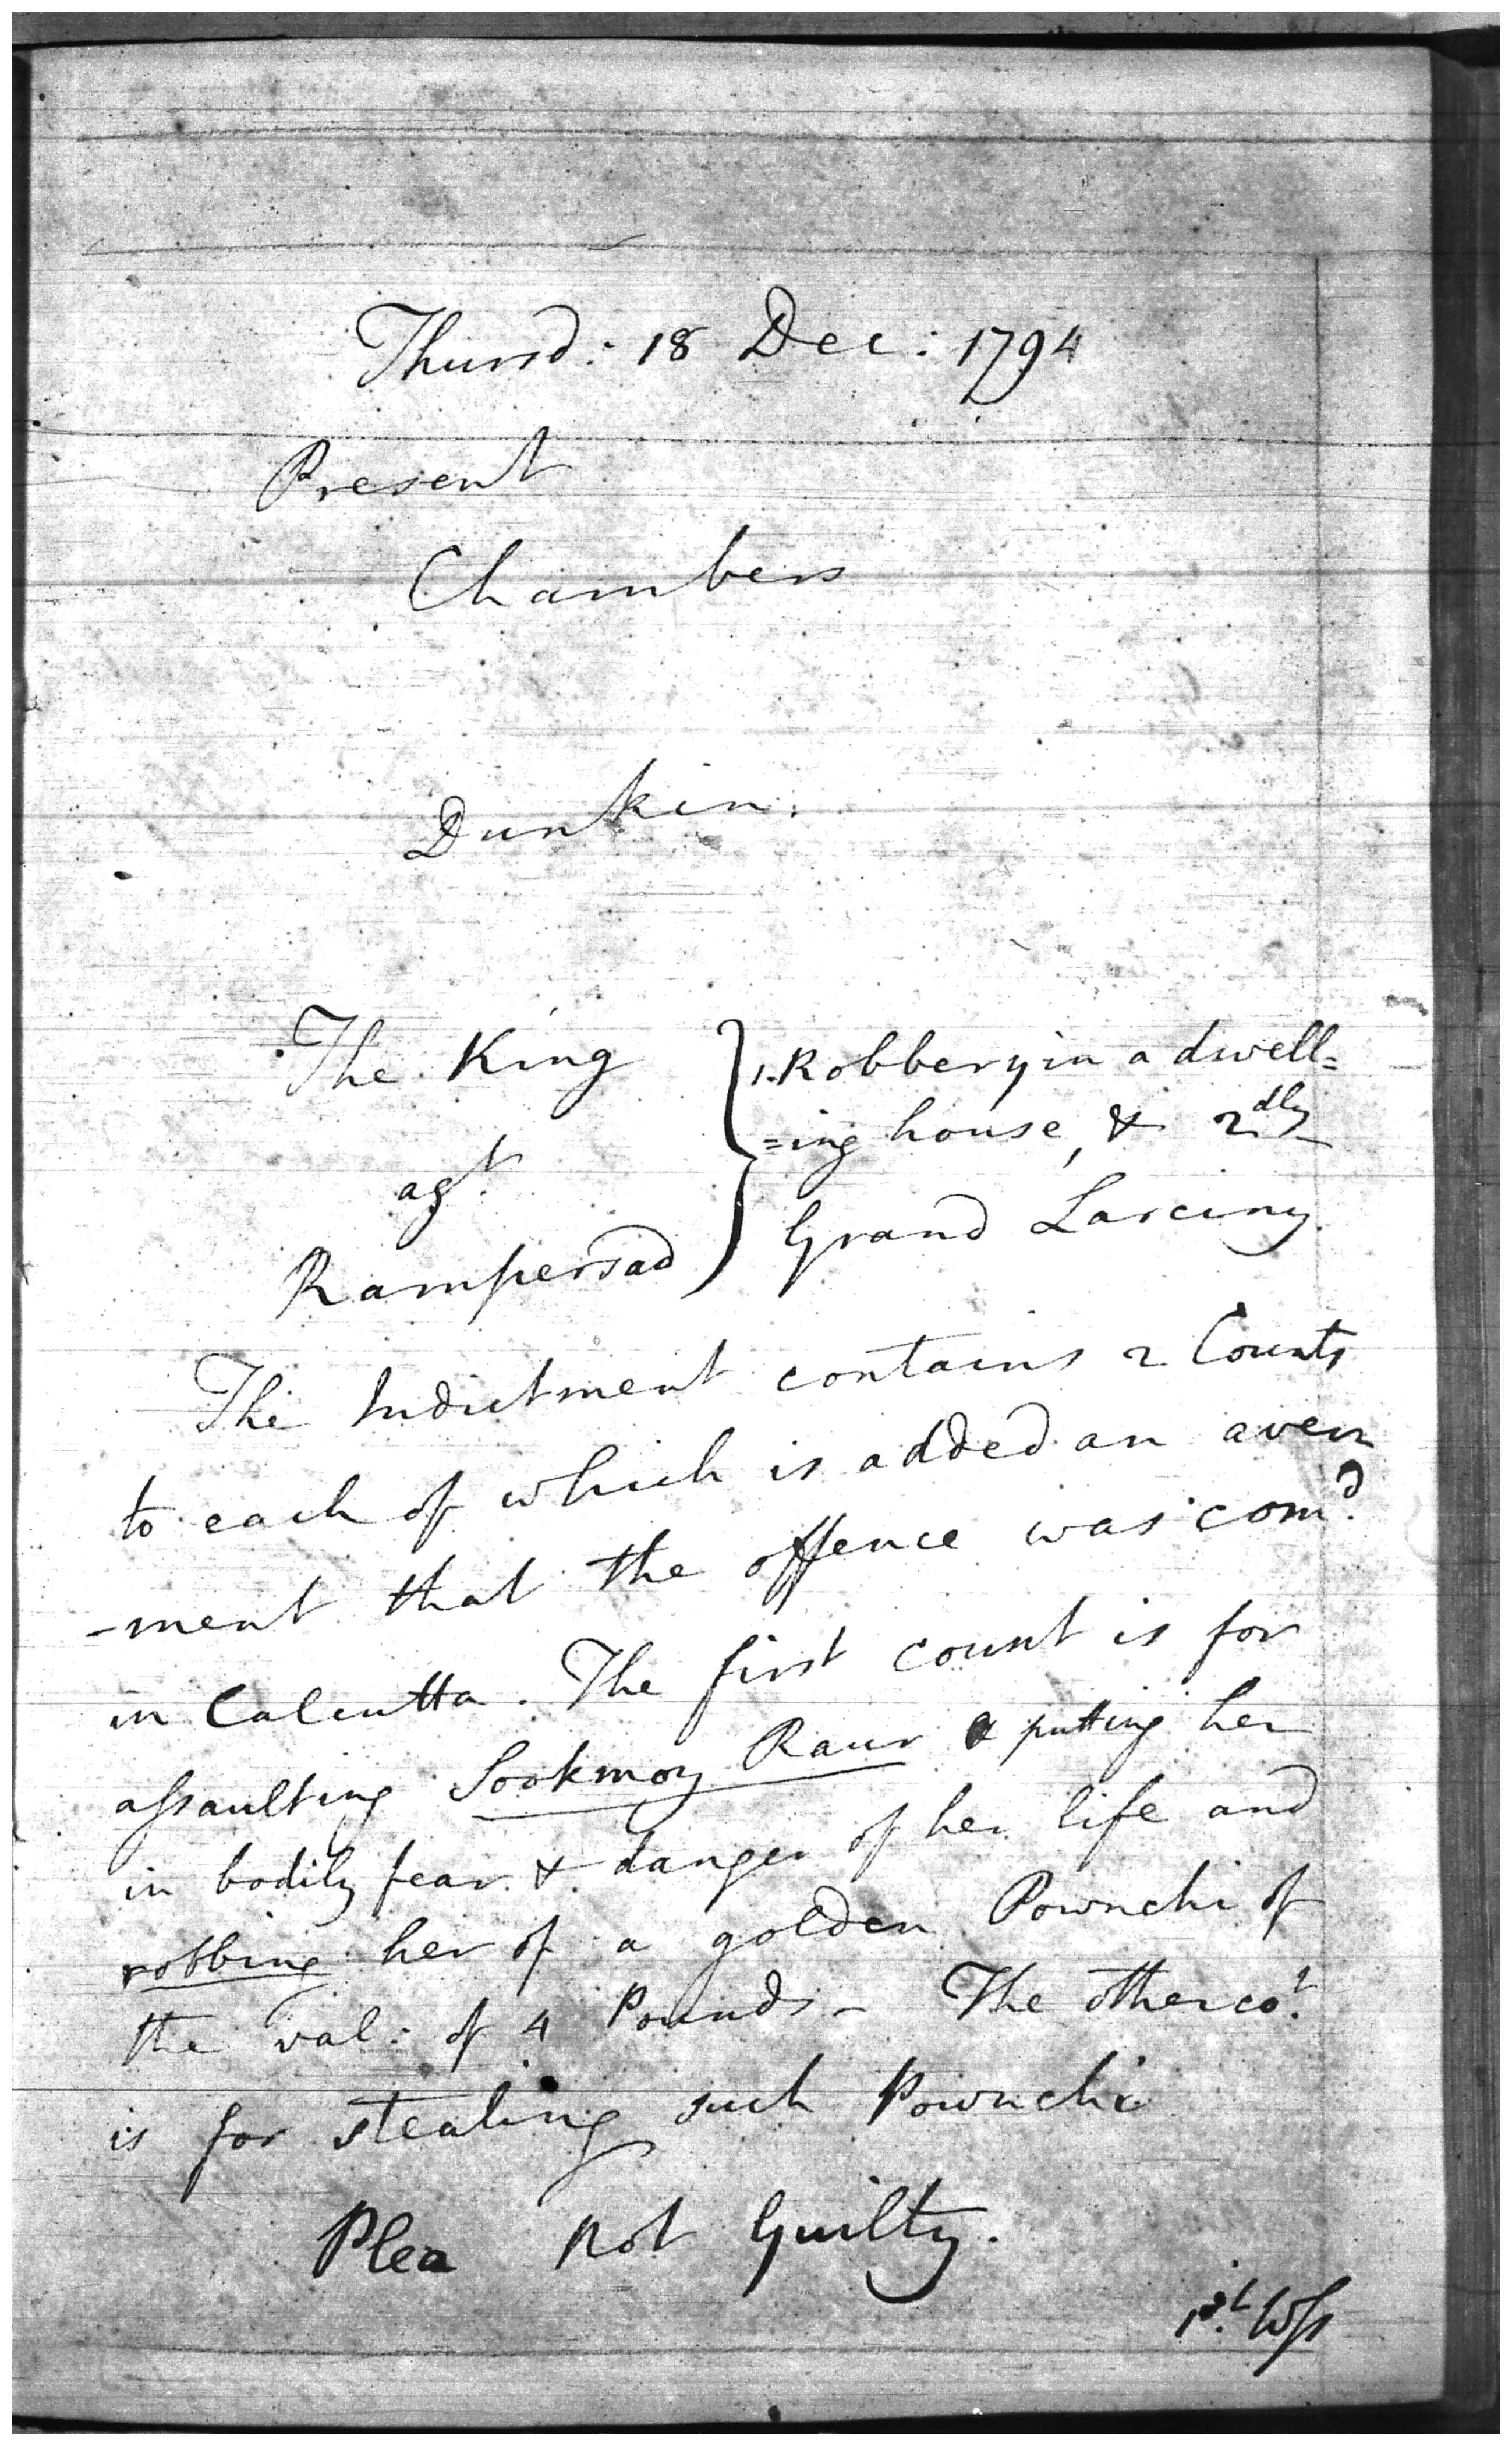 Thursd: 18 Dec: 1794
Present
Chambers
Dunkin.
The King
agt.
Rampersad
1. Robbery in a dwell=
=ing house, & 2dly
Grand Larciny.
The Indictment contains 2 Counts
to each of which is added an aver
-ment that the offence was comd.
in Calcutta. The first count is for
assaulting Sookmoy Raur & putting her
in bodily fear & danger of her life and
robbing her of a golden Pownchi of
the val: of 4 Pounds - The other cot.
is for stealing such Pownchi
Plea Not Guilty.
1st. Wss